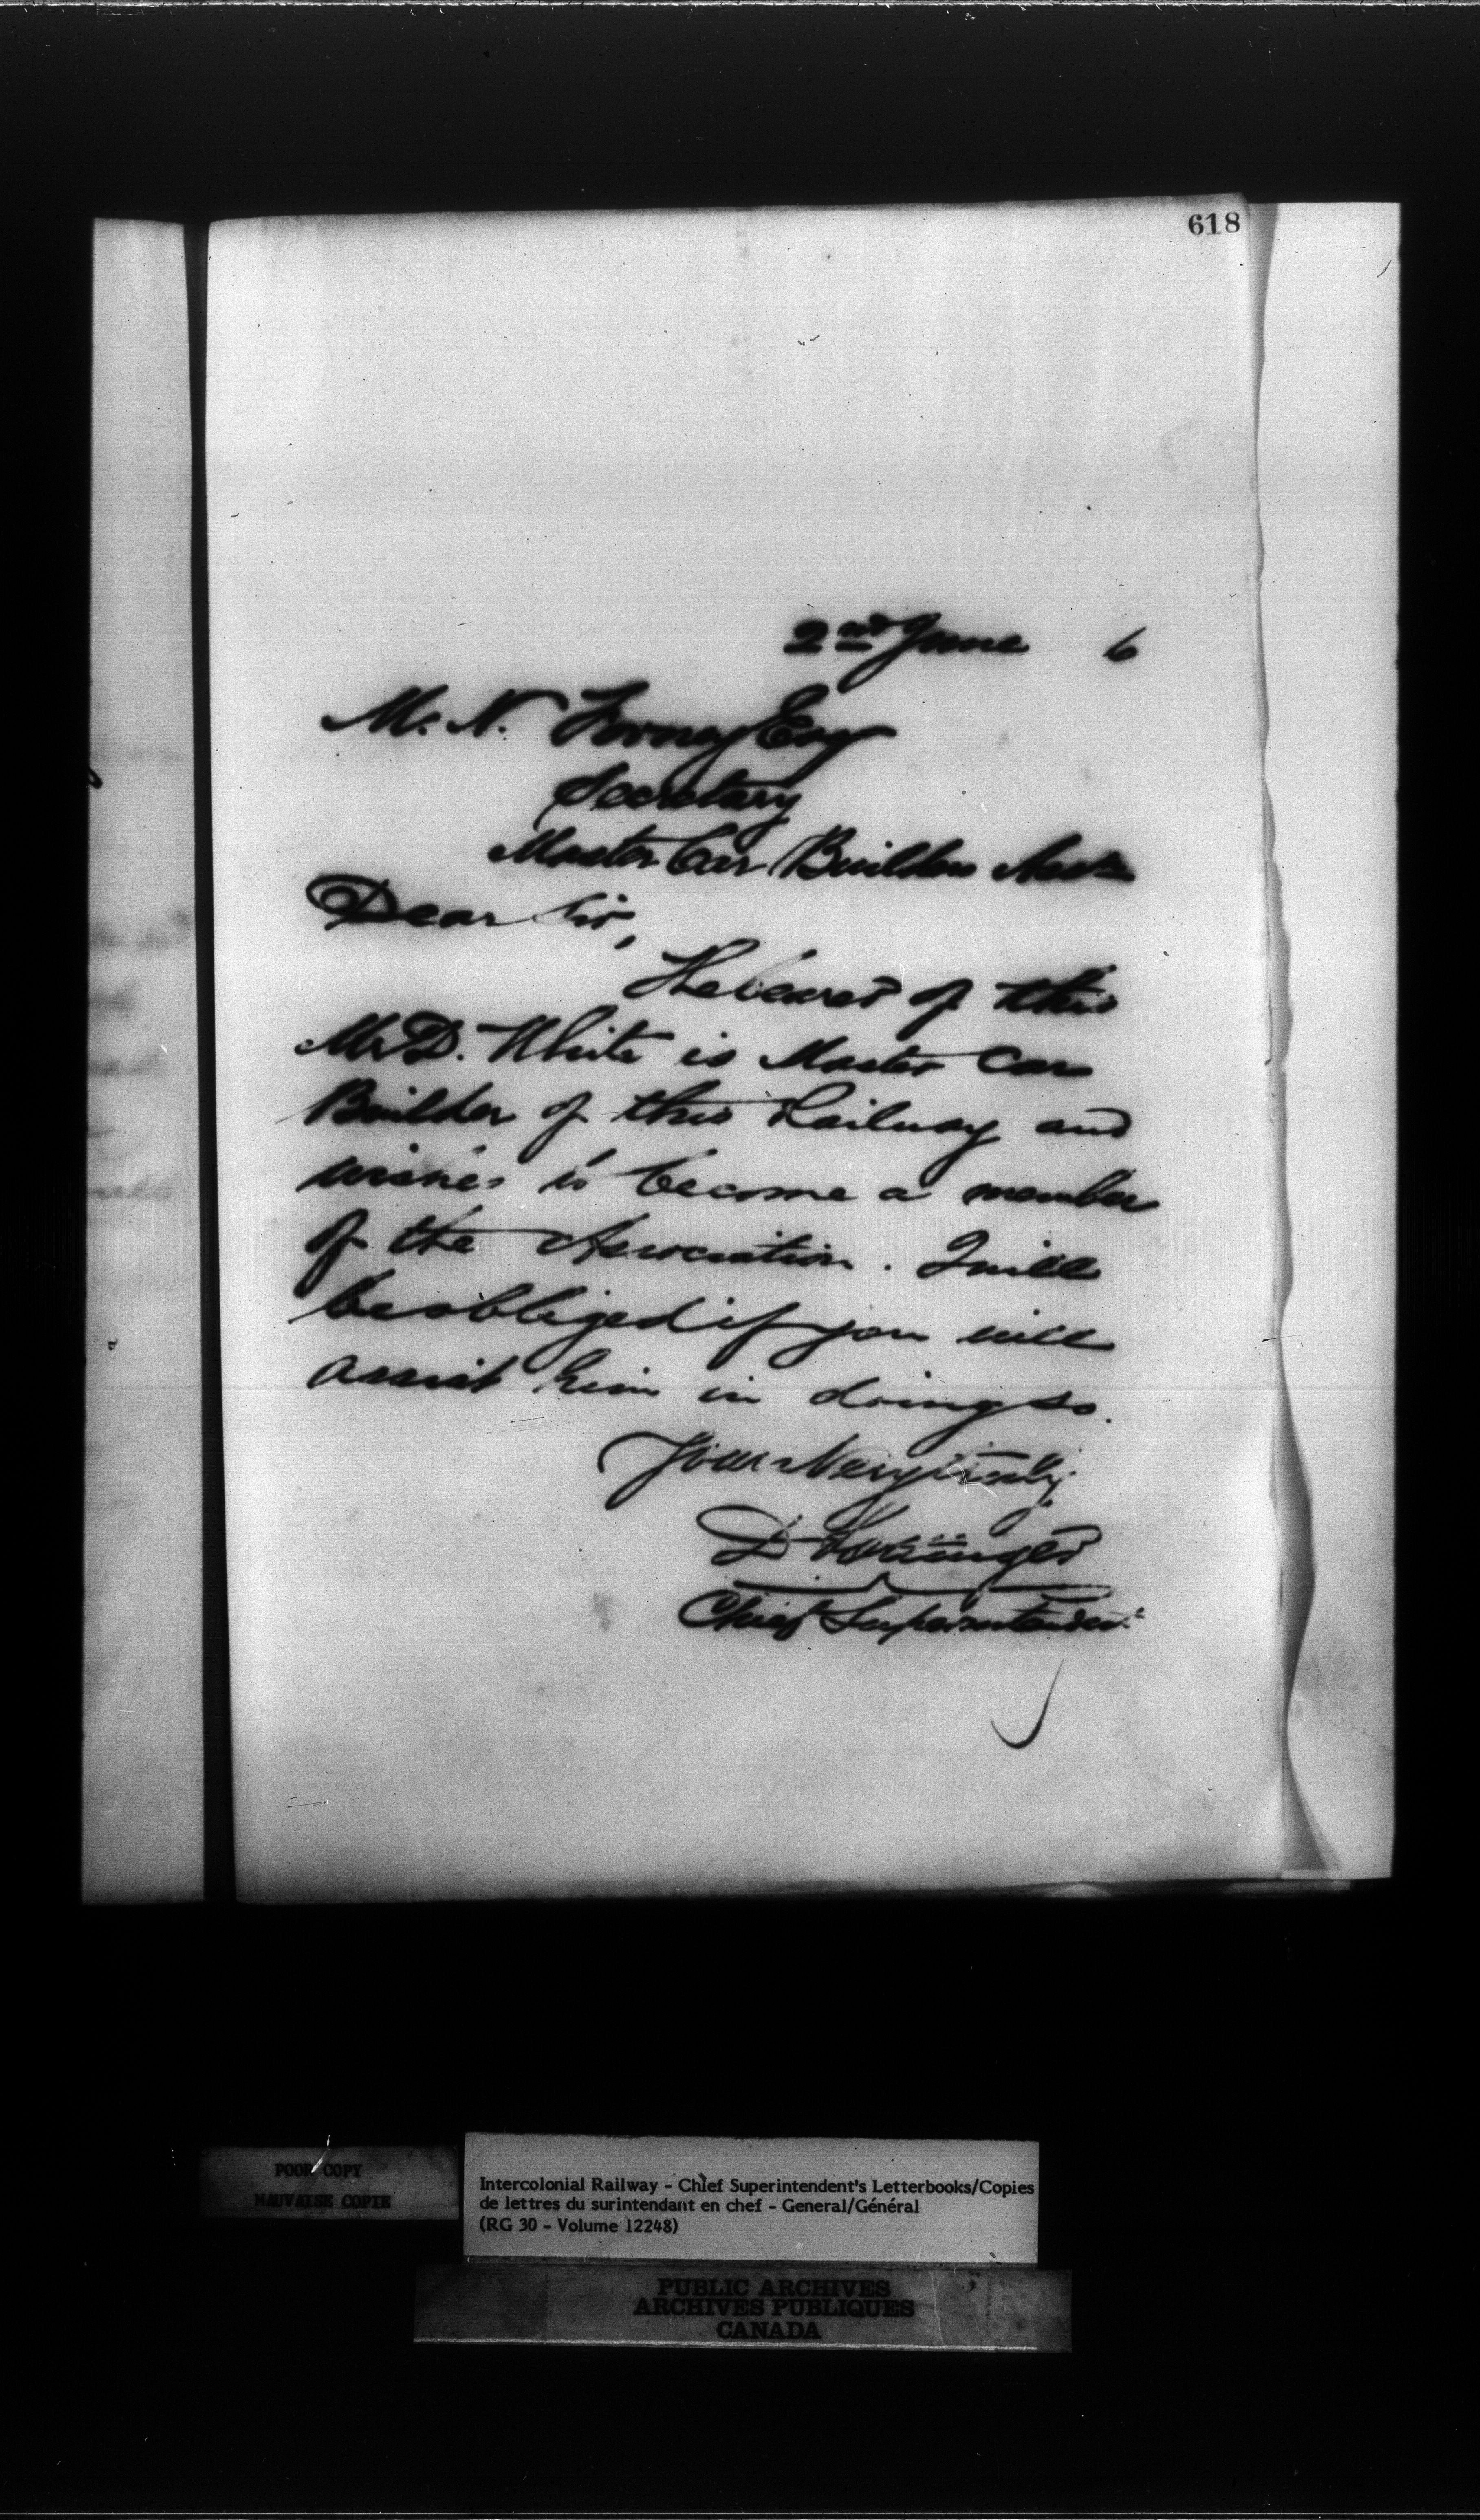 618
2nd June 6
M. N. Forney Esq
Secretary
Master Car Builders Assn
Dear Sir,
The bearer of this
Mr D. White is Master Car
Builder of this Railway and
wishes to become a member
of the Association. I will
be obliged if you will
assist him in doing so.
Yours Very truly
D Pottinger
Chief Superintendent
POOR COPY
MAUVAISE COPIE
Intercolonial Railway - Chief Superintendent's Letterbooks/Copies
de lettres du surintendant en chef - General/Général
(RG 30 - Volume 12248)
PUBLIC ARCHIVES
ARCHIVES PUBLIQUES
CANADA